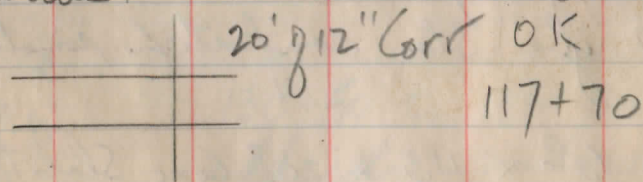 20' of 12" Corr OK.
117+70